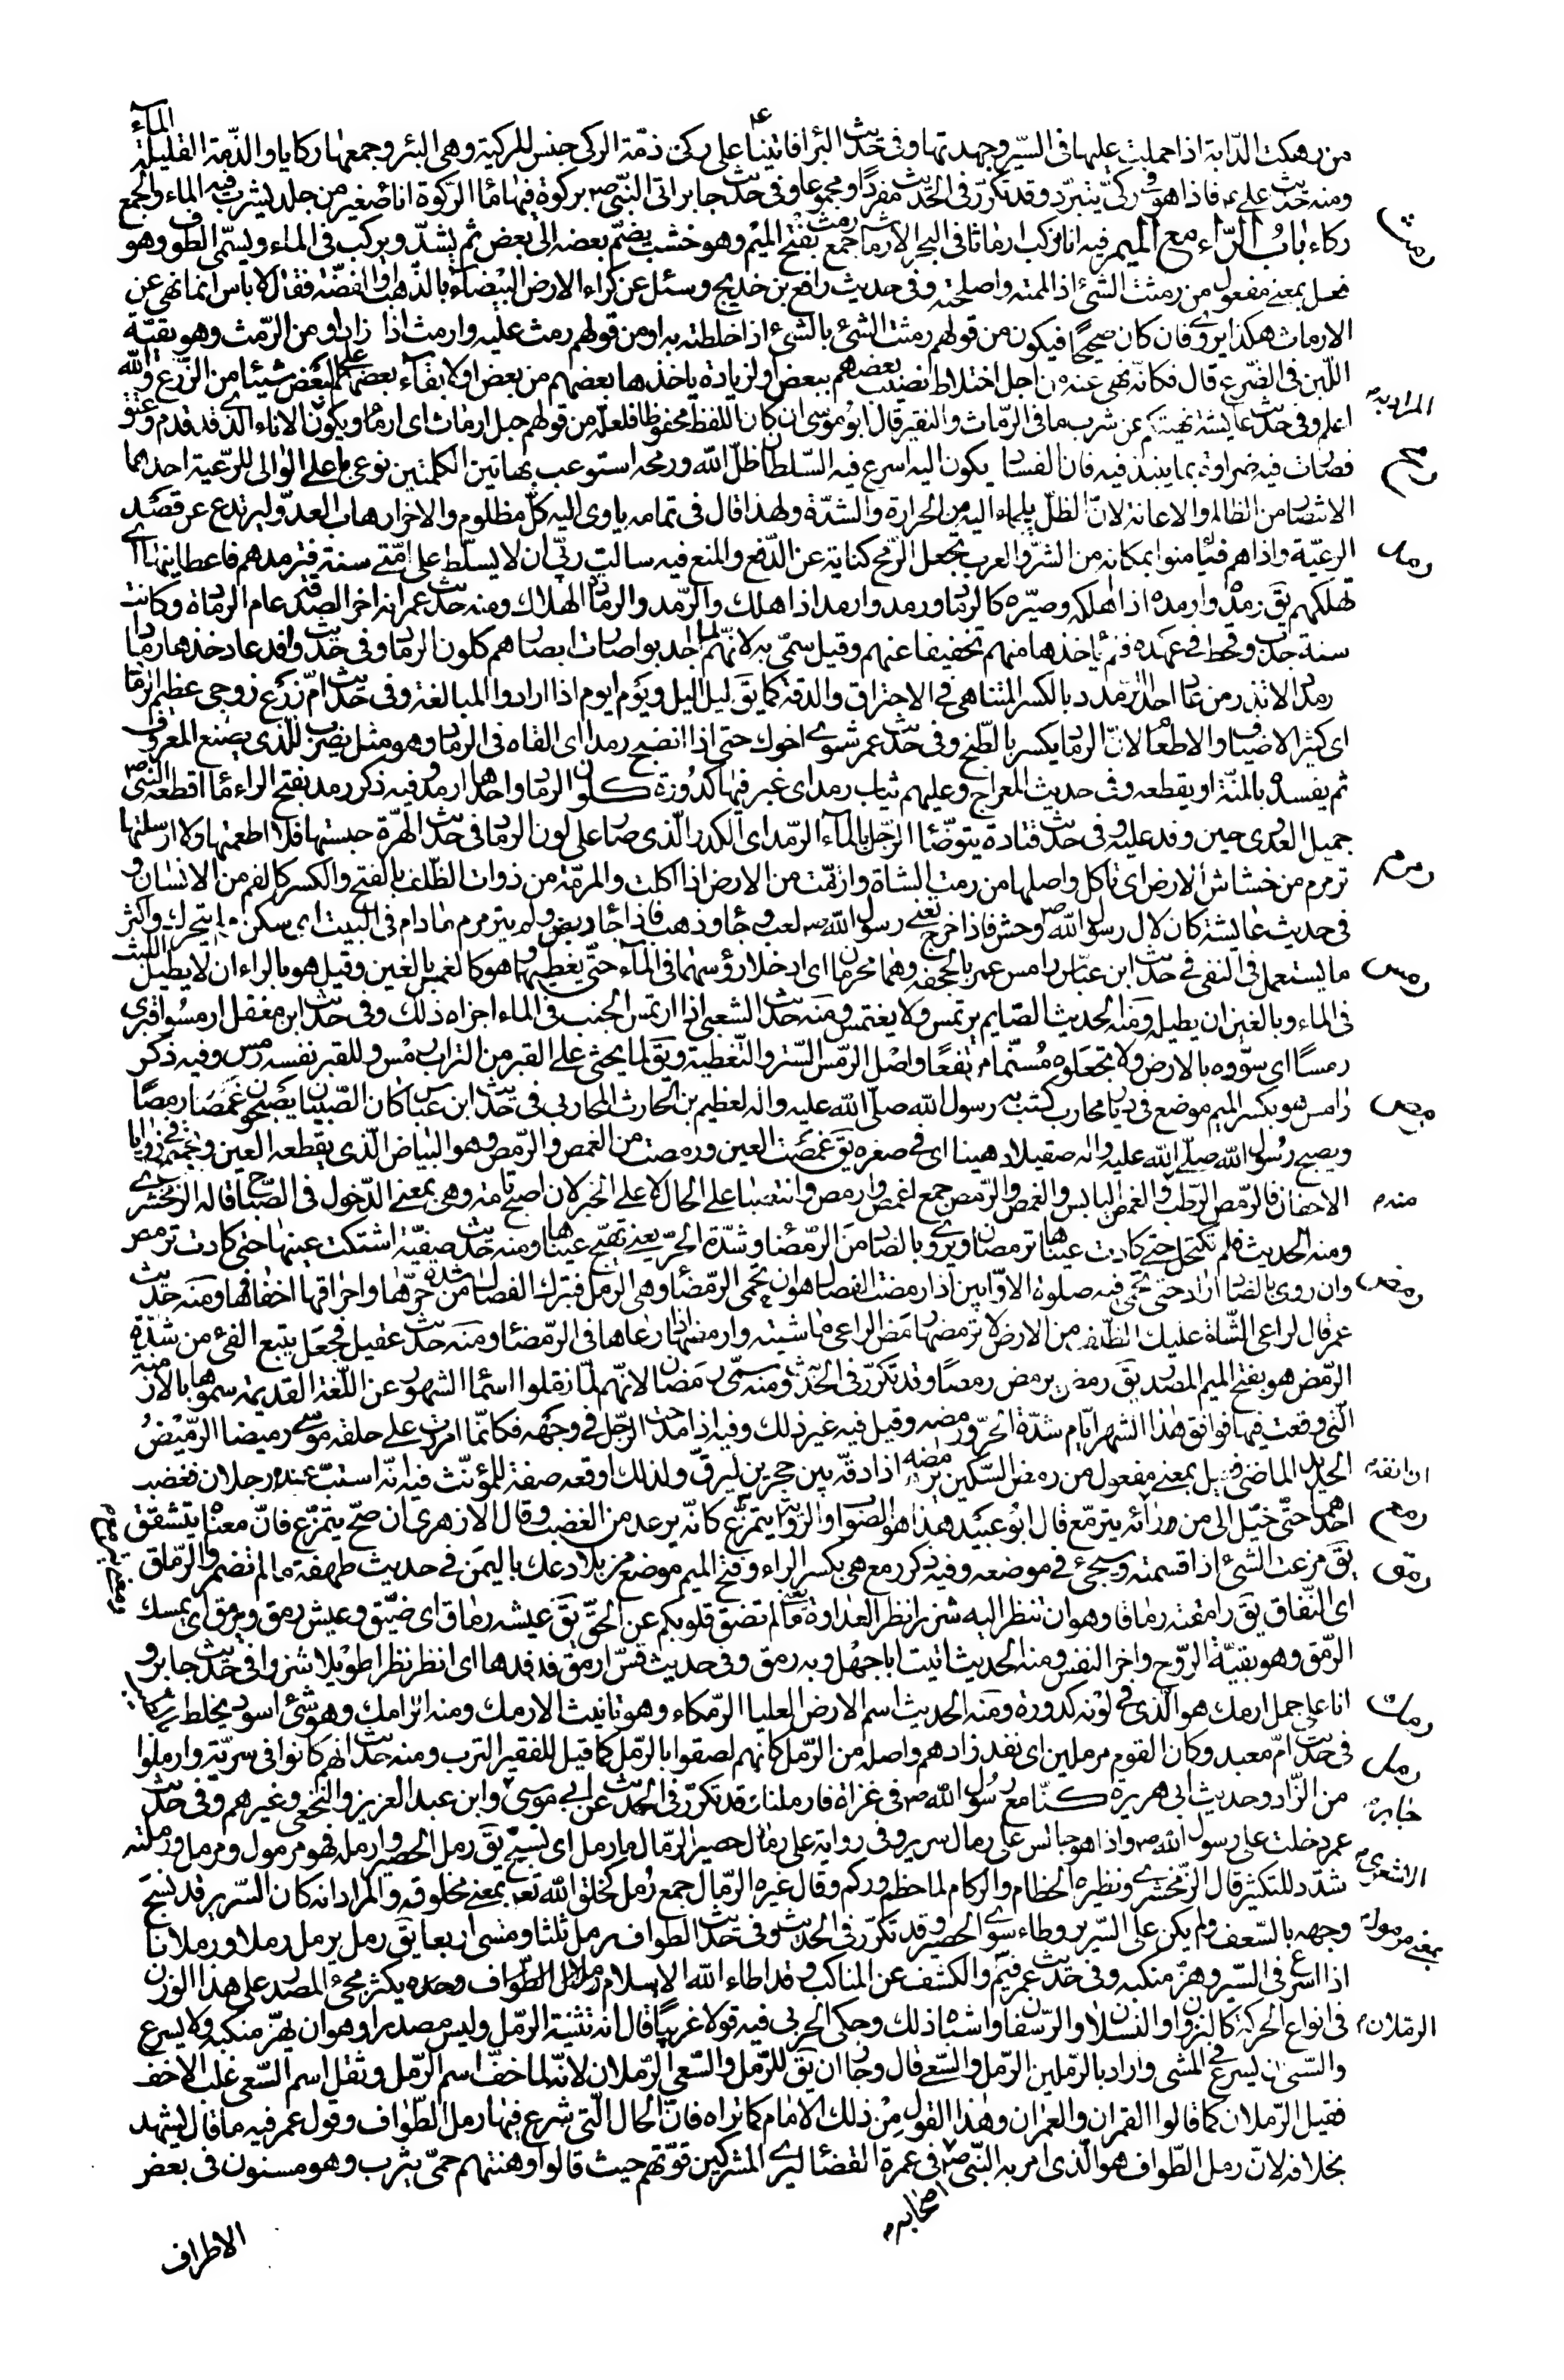 من رهكت الدّابة اذا حملت عليها فى السّير وجهدتها وفى حديث البرا فاتينا على ركىّ ذمّة الركى جنس للركية وهى البئر وجمعها ركايا والذّمة القليلة الماء
ومنه حديث علىّ ع فاذا هو فى ركىّ يتبرّد وقد تكرّر فى الحديث مفردًا ومجموعا وفى حديث جابر اتى النّبى ص بركوة فيها ماء الرّكوة اناء صغير من جلد يشرب فيه الماء والجمع
رمث
ركاء باب الرّاء مع الميم فيه انا نركب ارماثا فى البحر الارماث جمع رمث بفتح الميم وهو خشب يضمّ بعضه الى بعض ثم يشدّ ويركب فى الماء ويسمّى الطّوف وهو
فعل بمعنى مفعول من رمثت الشئ اذا لممته واصلحته وفى حديث رافع بن خديج وسئل عن كراء الارض البيضاء بالذّهب والفضّة فقال لا باس انما نهى عن
الارماث هكذا يروى فان كان صحيحًا فيكون من قولهم رمثت الشئ بالشئ اذا خلطته به او من قولهم رمث عليه وارمث اذا زاد او من الرّمث وهو بقيّة
اللّبن فى الضّرع قال فكانّه نهى عنه من اجل اختلاط نصيب بعضهم ببعض او لزيادة ياخذها بعضهم من بعض او لابقاء بعضهم على البعض شيئا من الزّرع والله
المراد به
اعلم وفى حديث عايشة نهيتكم عن شرب ما فى الرّماث والنقير قال ابو موسى ان كان اللفظ محفوظا فلعلّه من قولهم حبل ارماث اى ارمام ويكون الاناء الّذى قد قدم وعتق
رمح
فصارت فيه ضراوة بما ينبذ فيه فان الفساد يكون اليه اسرع فيه السّلطان ظلّ الله ورمحه استوعب بهاتين الكلمتين نوعى ما على الوالى للرّعية احدهما
الانتصار من الظالم والاعانة لانّ الظلّ يلجاء اليه من الحرارة والشدّة ولهذا قال فى تمامه ياوى اليه كلّ مظلوم والاخر ارهاب العدوّ ليرتدع عن قصد
رمد
الرعيّة واذاهم فيامنوا بمكانه من الشرّ والعرب تجعل الرّمح كناية عن الدّفع والمنع فيه سالت ربّى ان لا يسلّط على امّتى سنة فترمدهم فاعطانيها اى
تهلكهم يق رمده وارمده اذا اهلكه وصيّره كالرماد ورمد وارمد اذا هلك والرّمد والرمادة الهلاك ومنه حديث عمر انه اخر الصدقة عام الرمادة وكانت
سنة جدب وقحط فى عهده فلم ياخذها منهم تخفيفا عنهم وقيل سمّى به لانّهم لما اجدبوا صارت الوانهم كلون الرماد وفى حديث وافد عاد خذها رمادا
رمددا لا تذر من عاد احدا الرمدد بالكسر المتناهى فى الاحتراق والدقة كما يق ليل اليل ويوم ايوم اذا ارادوا المبالغة وفى حديث امّ زرع زوجى عظيم الرّماد
اى كثير الاضياف والاطعام لانّ الرماد يكسر بالطّبخ وفى حديث عمر شوى اخوك حتى اذا انضج رمد اى القاه فى الرماد وهو مثل يضرب للّذى يصنع المعروف
ثم يفسده بالمنّة او يقطعه وفى حديث المعراج وعليهم ثياب رمد اى غبر فيها كدورة كلون الرماد واحدها ارمد وفيه ذكر رمد بفتح الراء ماء اقطعه النّبى ص
جميل العدوى حين وفد عليه وفى حديث قتادة يتوضّا الرّجل بالماء الرّمد اى الكدر الّذى صار على لون الرماد فى حديث الهرّة حبستها فلا اطعمتها ولا ارسلتها
رمرم
ترمرم من خشاش الارض اى تاكل واصلها من رمت الشاة وارتمّت من الارض اذا اكلت والمرمّة من ذوات الظّلف بالفتح والكسر كالفم من الانسان و
فى حديث عايشة كان لال رسول الله ص وحش فاذا خرج تعنى رسول الله ص لعب وجاء وذهب فاذا جاء ربض ولم يترمرم ما دام فى البيت اى سكن ولم يتحرك واكثر
رمس
ما يستعمل فى النفى فى حديث ابن عبّاس رامس عمر بالجحفة وهما محرمان اى ادخلا رؤسهما فى الماء حتّى يغطيهما وهو كالغمس بالغين وقيل هو بالراء ان لا يطيل اللبث
فى الماء وبالغين ان يطيله ومنه الحديث الصّايم يرتمس ولا يغتمس ومنه حديث الشعبى اذا ارتمس الجنب فى الماء اجزاه ذلك وفى حديث ابن مغفل ارمسوا قبرى
رمسًا اى سوّوه بالارض ولا تجعلوه مسنّما مرتفعًا واصل الرّمس السّتر والتّغطية ويق لما يحثى على القبر من التراب رمس وللقبر نفسه رمس وفيه ذكر
رمص
رامس هو بكسر الميم موضع فى ديار محارب كتب به رسول الله صلّى الله عليه واله لعظيم بن الحارث المحاربى فى حديث ابن عباس كان الصّبيان يصبحون غمصا رمصًا
ويصبح رسول الله صلّى الله عليه واله صقيلا دهينا اى فى صغره يق غمصت العين ورمصت من الغمص والرّمص وهو البياض الّذى يقطعه العين ويجتمع فى زوايا
منه م
الاجفان فالرّمص الرّطب والغمص اليابس والغمص والرّمص جمع اغمص وارمص وانتصبا على الحال لا على الخبر لان اصبح تامة وهى بمعنى الدّخول فى الصّباح قاله الزمخشرى
ومنه الحديث فلم تكتحل حتى كادت عيناها ترمصان ويروى بالضاد من الرّمضاء وشدّة الحرّ يعنى تهيج عيناها ومنه حديث صفيّة اشتكت عينها حتى كادت ترمص
رمض
وان روى بالضاد اراد حتى تحمى فيه صلوة الاوّابين اذا رمضت الفصال هو ان تحمى الرّمضاء وهى الرمل فتبرك الفصال من شدّة حرّها واحراقها اخفافها ومنه حديث
عمر قال لراعى الشّاة عليك الظّلف من الارض لا ترمضها رمض الراعى ماشيته وارمضها اذا رعاها فى الرّمضاء ومنه حديث عقيل فجعل يتبع الفئ من شدّة
الرّمض هو بفتح الميم المصدر يق رمض يرمض رمضًا وقد تكرّر فى الحديث ومنه سمّى رمضان لانهم لمّا نقلوا اسماء الشهور عن اللّغة القديمة سموها بالازمنة
الّتى وقعت فيها فوافق هذا الشهر ايّام شدّة الحرّ ورمضه وقيل فيه غير ذلك وفيه اذا مدحت الرّجل فى وجهه فكانّما امررت على حلقه موسى رميضا الرّميض
الحديد الماضى فعيل بمعنى مفعول من رمض السّكين يرمضه اذا دقّه بين حجرين ليرقّ ولذلك اوقعه صفة للمؤنّث فيه انّه استبّ عنده رجلان فغضب
ان انفه م
رمع
احدهما حتّى خيّل الى من رءائه يترمّع قال ابو عبيد هذا هو الصّواب والرّواية يتمزّع كانّه يرعد من الغضب وقال الازهرى ان صحّ يتمزّع فانّ معناه يتشقّق
رمق
يق مزعت الشئ اذا قسمته وسيجئ فى موضعه وفيه ذكر رمع هى بكسر الراء وفتح الميم موضع من بلاد عك باليمن فى حديث طهفة ما لم تضمروا الرّماق
اى النّفاق يق رامقته رماقا وهو ان تنظر اليه شزرا نظر العداوة يعنى ما لم تضق قلوبكم عن الحقّ يق عيشه رماق اى ضيّق وعيش رمق ومرمق اى يمسك
الرّمق وهو بقيّة الرّوح واخر النفس ومنه الحديث اتيت ابا جهل وبه رمق وفى حديث قسّ ارمق فدفدها اى انظر نظرا طويلا شزرا وفى حديث جابر و
رمك
انا على جمل ارمك هو الّذى فى لونه كدورة ومنه الحديث اسم الارض العليا الرّمكاء وهو تانيث الارمك ومنه الرّامك وهو شئ اسود يخلط بالطيب
رمل
فى حديث امّ معبد وكان القوم مرملين اى نفد زادهم واصله من الرّمل كانهم لصقوا بالرّمل كما قيل للفقير الترب ومنه حديث انهم كانوا فى سريّة وارملوا
من الزّاد وحديث ابى هريرة كنّا مع رسول الله ص فى غزاة فارملنا وقد تكرّر فى الحديث عن ابى موسى وابن عبد العزيز والنّخعى وغيرهم وفى حديث
الاشعرى
عمر دخلت على رسول الله ص واذا هو جالس على رمال سرير وفى رواية على رمال حصير الرّمال ما رمل اى نسج يق رمل الحصير وارمله فهو مرمول ومرمل ورملته
شدّد للتكثير قال الزّمخشرى ونظيره الحطام والركام لما حطم وركم وقال غيره الرّمال جمع رمل كخلق الله تعه بمعنى مخلوقه والمراد انه كان السّرير قد نسج
بمعنى مرموله
وجهه بالسّعف ولم يكن على السّرير وطاء سوى الحصير وقد تكرّر فى الحديث وفى حديث الطواف رمل ثلثا ومشى اربعا يق رمل يرمل رملا ورملانا
اذا اسرع فى السّير وهزّ منكبه وفى حديث عمر فيم الرّملان والكشف عن المناكب وقد اطاء الله الاسلام يكثر مجئ المصدر على هذا الوزن
الرملان م
فى انواع الحركة كالنزوان والنسلان والرّسفان واشباه ذلك وحكى الحربى فيه قولا غريبًا قال انه تثنية الرّمل وليس مصدرا وهو ان يهزّ منكبيه ولا يسرع
والسّعى ان يسرع فى المشى واراد بالرّملين الرّمل والسّعى قال وجاز ان يق للرّمل والسّعى الرّملان لانّه لما خفّ اسم الرّمل وثقل اسم السّعى غلب الاخف
فقيل الرّملان كما قالوا القمران والعمران وهذا القول من ذلك الامام كما تراه فانّ الحال الّتى شرع فيها رمل الطّواف وقول عمر فيه ما قال يشهد
بخلافه لانّ رمل الطّواف هو الّذى امر به النّبى ص فى عمرة القضاء ليرى المشركين قوّتهم حيث قالوا وهنتهم حمّى يثرب وهو مسنون فى بعض
اصحابه م
الاطراف